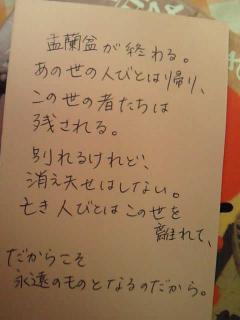 盂蘭盆が終わる。
あの世の人びとは帰り、
この世の者たちは
残される。
別れるけれど、
消え失せはしない。
亡き人びとはこの世を
離れて、
だからこそ
永遠のものとなるのだから。